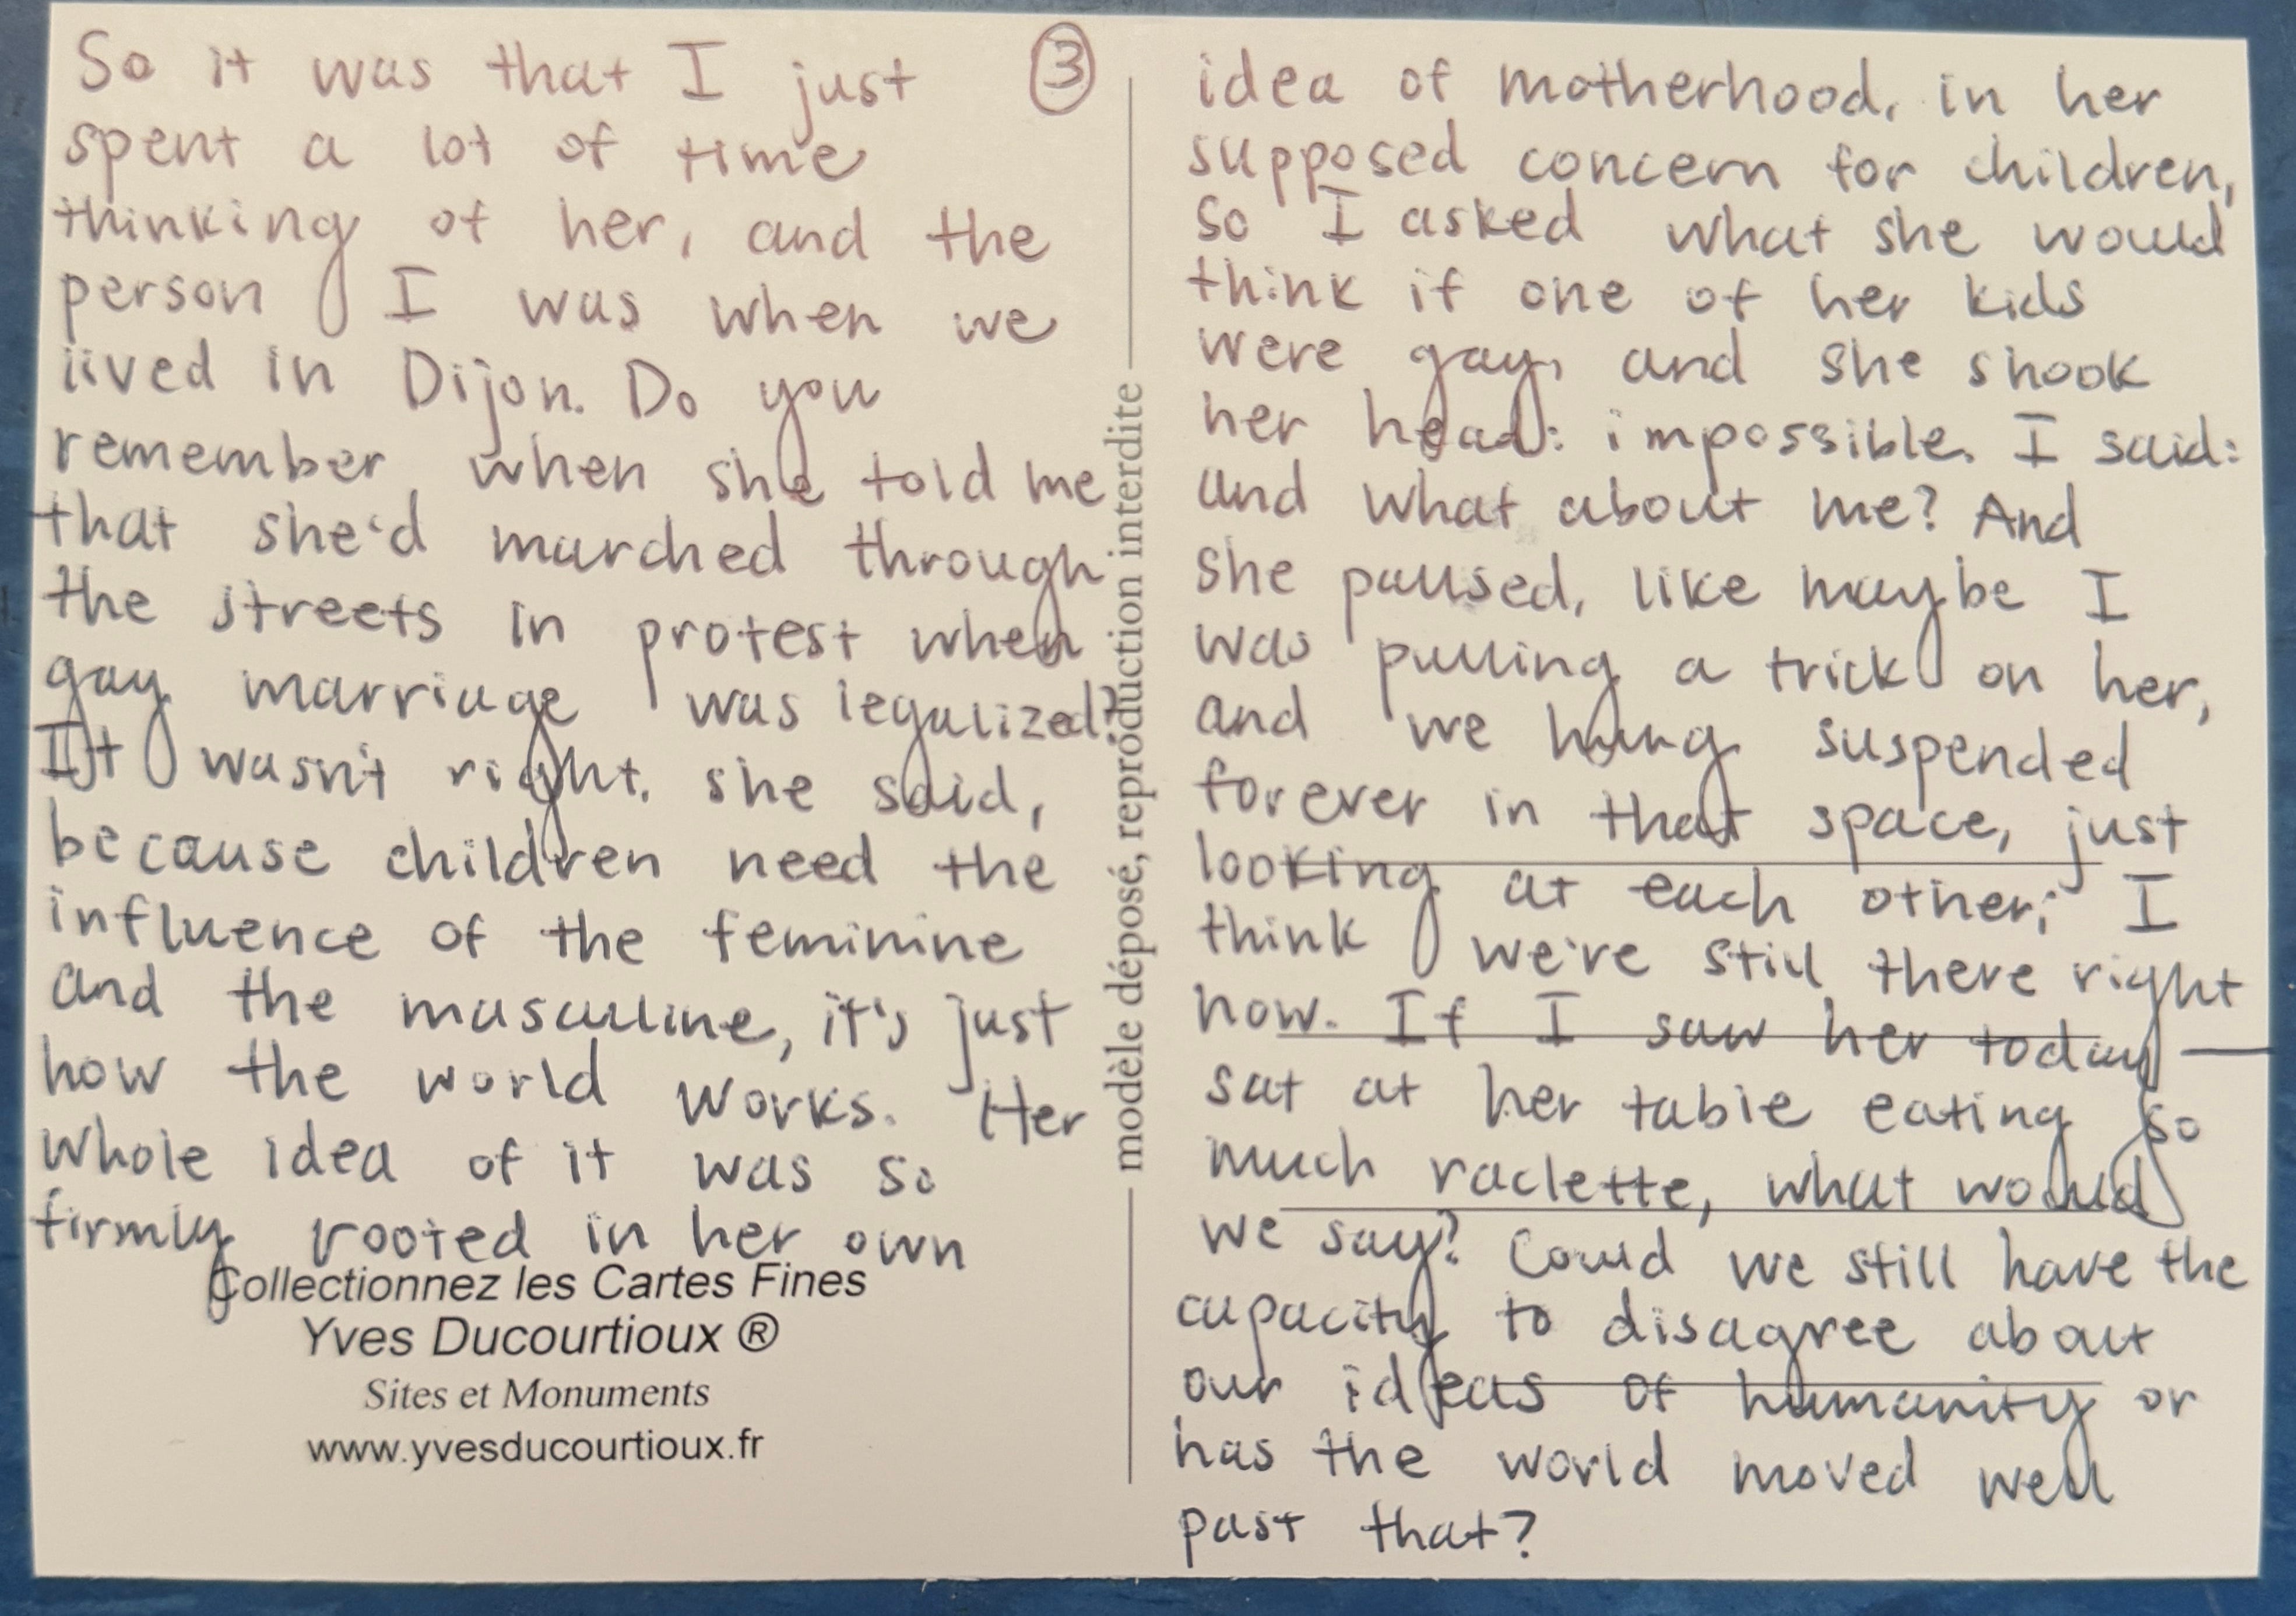 So it was that I just
spent a lot of time
thinking of her, and the
person I was when we
lived in Dijon. Do you
remember when she told me
that she'd marched through
the streets in protest when
gay marriage was legalized?
It wasn't right, she said,
because children need the
influence of the feminine
and the masculine, it's just
how the world works. Her
whole idea of it was so
firmly rooted in her own
Collectionnez les Cartes Fines
Yves Ducourtioux ®
Sites et Monuments
www.yvesducourtioux.fr
3
modèle déposé, reproduction interdite
idea of motherhood, in her
supposed concern for children,
so I asked what she would
think if one of her kids
were gay, and she shook
her head: impossible. I said:
and what about me? And
she paused, like maybe I
was pulling a trick on her,
and we hung suspended
forever in that space, just
looking at each other; I
think we're still there right
now. If I saw her today —
sat at her table eating so
much raclette, what would
we say? Could we still have the
capacity to disagree about
our ideas of humanity or
has the world moved well
past that?